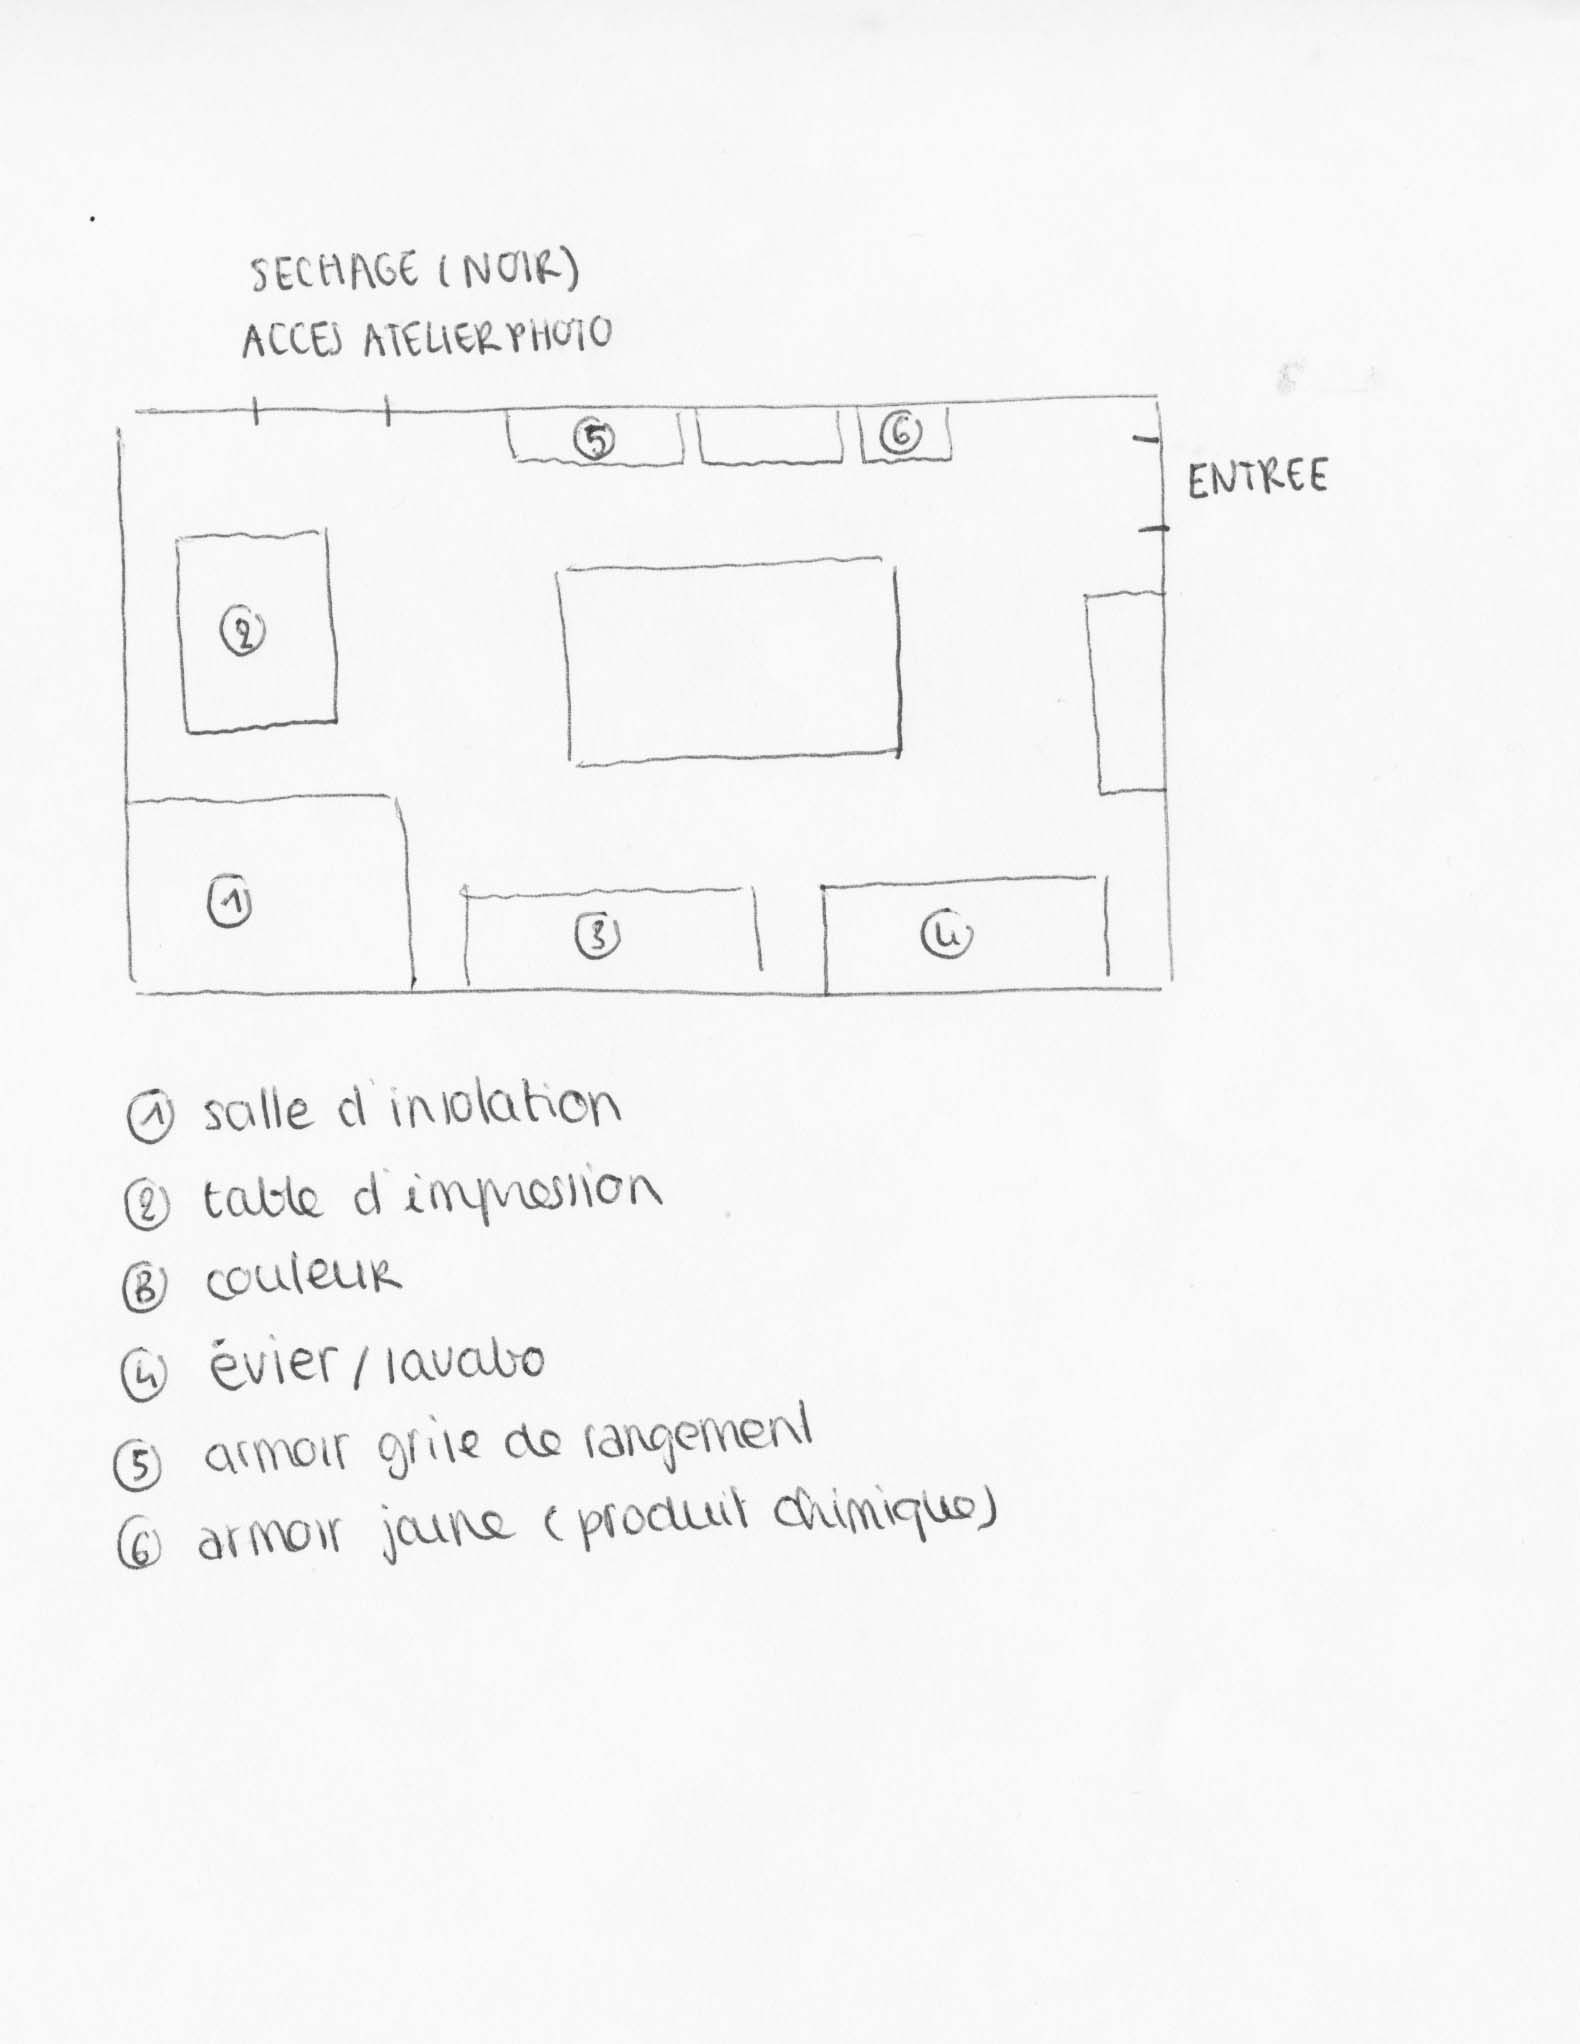 SECHAGE (NOIR)
ACCES ATELIER PHOTO
5
6
ENTREE
2
1
3
4
1 salle d'insolation
2 table d'impression
3 couleur
4 évier / lavabo
5 armoir grise de rangement
6 armoir jaune (produit chimique)